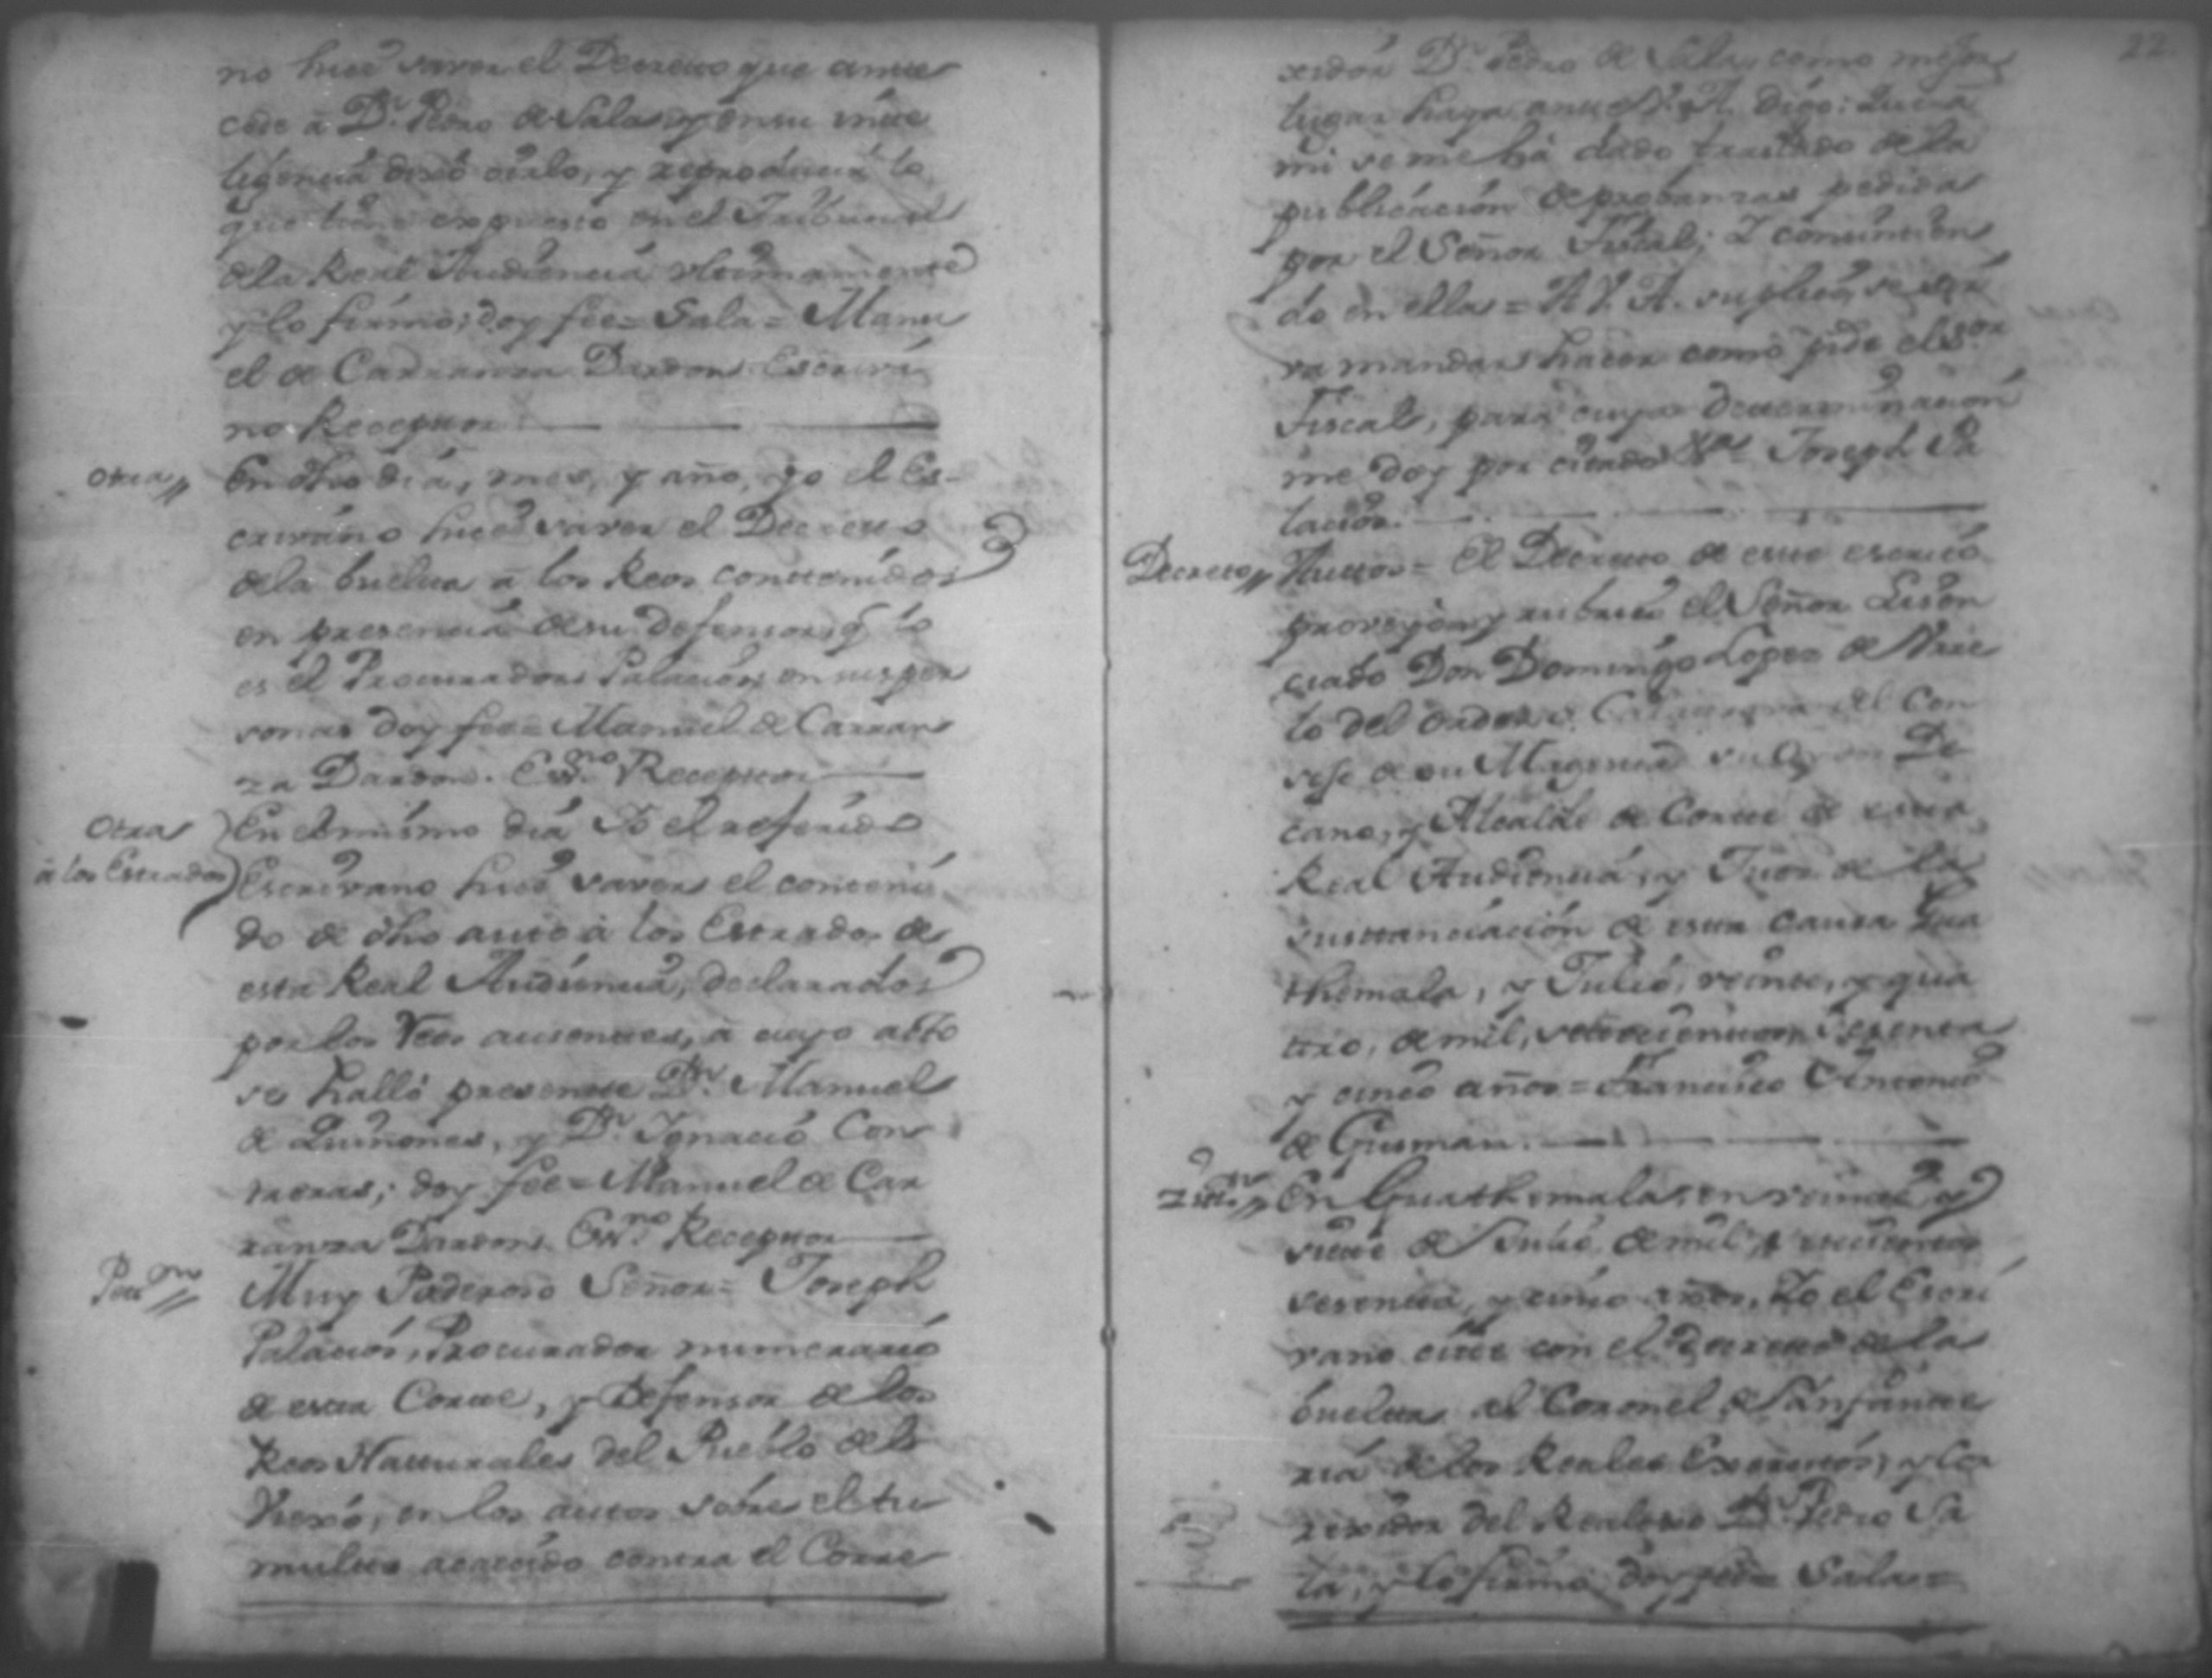 no hice saver el Decreto que ante
cede à Dn. Pedro de Sala, y en su inte
ligencia dixo oirlo, y reproducia lo
que tiene expuesto en el Tribunal
de la Real Audiencia ultimamente
y lo firmó; doy fee = Sala = Manu
el de Carranza Dardon Escriva
no Receptor
Otra En dho dia, mes, y año, yo el Es-
crivano hice saver el Decreto
de la buelta a los Reos contenidos
en presencia de su defensor q lo
es el Procurador Palacios, en sus per
sonas doy fee = Manuel de Carran
za Dardon. Essno. Receptor
Otra
à los Estrados
En el mismo dia Yo el referido
Escrivano hice saver el conteni
do de dho auto à los Estrados de
esta Real Audiencia, declarados
por los Reos ausentes, à cuyo acto
se halló presente Dn. Manuel
de Quiñones, y Dn. Ignacio Con
treras; doy fee = Manuel de Car
ranza Dardon Essno. Receptor
Petton Muy Poderoso Señor = Joseph
Palacios, Procurador numerario
de esta Corte, y Defensor de los
Reos Naturales del Pueblo de
en los autos sobre el tu
multo acaecido contra el Corre
22
xidor Dn. Pedro de Sala, como mejor
lugar haya ante V. A. digo: Que à
mi se me há dado traslado de la
publicacion de probanzas pedida
por el Señor Fiscal; Y consintien
do en ellas = A V. A. suplico, se sir
va mandar hacer como pide el Sor
Fiscal, para cuya determinacion
me doy por citado Joseph Pa
lacios.
Decreto Autos = El Decreto de este escrito
proveyó, y rubricó el Señor Licen
ciado Don Domingo Lopez de Urre
lo del orden de Calatrava del Con
sejo de su Magestad su Oydor De
cano, y Alcalde de Corte de esta
Real Audiencia, y Juez de la
sustanciacion de esta causa Gua
themala, y Julio, veinte, y qua
tro, de mil, setecientos, sesenta
y cinco años = Francisco Antonio
de Gusman.
En Guathemala, en veinte, y
siete de Julio de mil, setecientos
sesenta, y cinco años, Yo el Escri
vano cité con el Decreto de la
buelta al Coronel de Infante
ria de los Reales Exercitos, y Cor
rexidor del Realexo Dn. Pedro Sa
la, y lo firmó, doy fee = Sala =